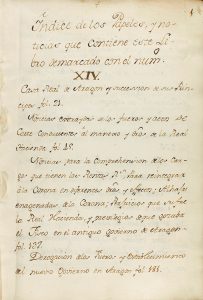 Indice de los Papeles, y no-
ticias que contiene este Li-
bro demarcado con el num.º
XIV.
Casa Real de Aragon y sucession de sus Prin-
cipes fol. 21.
Noticias extraydas a los fueros y actos de
Corte concernientes al manejo y de la Real
Hacienda fol. 48.
Noticias para la Comprehension de los Car-
gos que tienen las Rentas R.s reintegradas
a la Corona en diferentes dias y efectos; Alhajas
enagenadas de la Corona; Perjuicios que sufre
la Real Hacienda, y privilegios que gozaba
el Fisco en el antiguo govierno de Aragon
fol. 137.
Derogacion de los Fueros y Establecimiento
del nuevo Govierno en Aragon fol. 181.